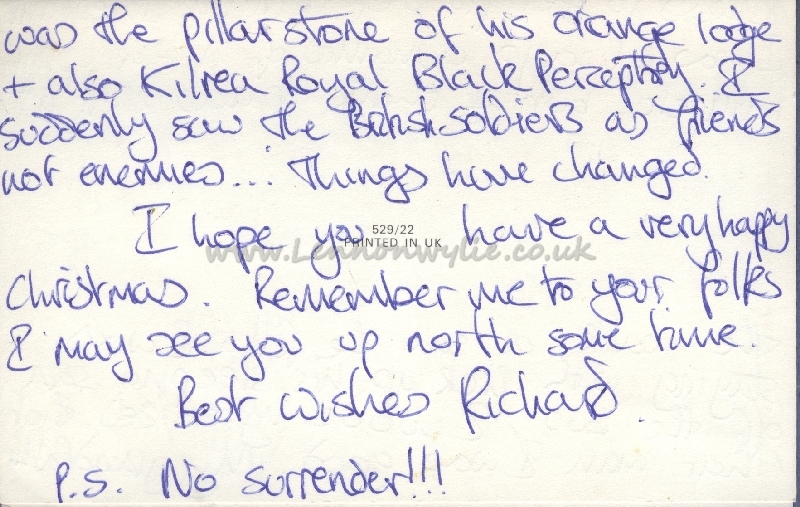 was the pillarstone of his orange lodge
+ also Kilrea Royal Black Perceptory. I
suddenly saw the British soldiers as friends
not enemies... Things have changed.
I hope you have a very happy
529/22
PRINTED IN UK
www.Lennonwylie.co.uk
Christmas. Remember me to your folks
I may see you up north some time.
Best wishes Richard.
P.S. No surrender!!!